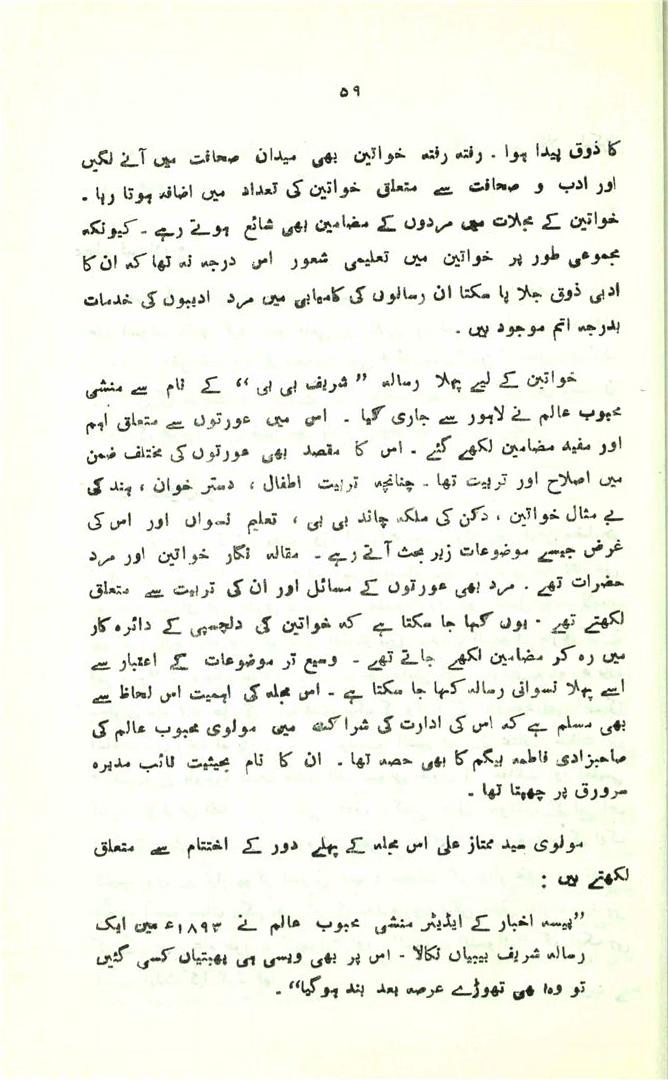 ۵۹
کا ذوق پیدا ہوا ۔ رفتہ رفتہ خواتین بھی میدان صحافت میں آنے لگیں
اور ادب و صحافت سے متعلق خواتین کی تعداد میں اضافہ ہوتا رہا ۔
خواتین کے مجلات میں مردوں کے مضامین بھی شائع ہوتے رہے ۔ کیونکہ
مجموعی طور پر خواتین میں تعلیمی شعور اس درجہ نہ تھا کہ ان کا
ادبی ذوق جلا پا سکتا ان رسالوں کی کامیابی میں مرد ادیبوں کی خدمات
بدرجہ اتم موجود ہیں ۔
خواتین کے لیے پہلا رسالہ ”شریف بی بی“ کے نام سے منشی
محبوب عالم نے لاہور سے جاری کیا ۔ اس میں عورتوں سے متعلق اہم
اور مفید مضامین لکھے گئے ۔ اس کا مقصد بھی عورتوں کی مختلف ضمن
میں اصلاح اور تربیت تھا ۔ چنانچہ تربیت اطفال ، دستر خوان ، ہند کی
بے مثال خواتین ، دکن کی ملکہ چاند بی بی ، تعلیم نسواں اور اس کی
غرض جیسے موضوعات زیر بحث آتے رہے ۔ مقالہ نگار خواتین اور مرد
حضرات تھے ۔ مرد بھی عورتوں کے مسائل اور ان کی تربیت سے متعلق
لکھتے تھے ۔ یوں کہا جا سکتا ہے کہ خواتین کی دلچسپی کے دائرہ کار
میں رہ کر مضامین لکھے جاتے تھے ۔ وسیع تر موضوعات کے اعتبار سے
اسے پہلا نسوانی رسالہ کہا جا سکتا ہے ۔ اس مجلہ کی اہمیت اس لحاظ سے
بھی مسلم ہے کہ اس کی ادارت کی شراکت میں مولوی محبوب عالم کی
صاحبزادی فاطمہ بیگم کا بھی حصہ تھا ۔ ان کا نام بحیثیت نائب مدیرہ
سرورق پر چھپتا تھا ۔
مولوی سید ممتاز علی اس مجلہ کے پہلے دور کے اختتام سے متعلق
لکھتے ہیں :
”پیسہ اخبار کے ایڈیٹر منشی محبوب عالم نے ۱۸۹۳ء میں ایک
رسالہ شریف بیبیاں نکالا ۔ اس پر بھی ویسی ہی پھبتیاں کسی گئیں
تو وہ بھی تھوڑے عرصہ بعد بند ہوگیا“ ۔